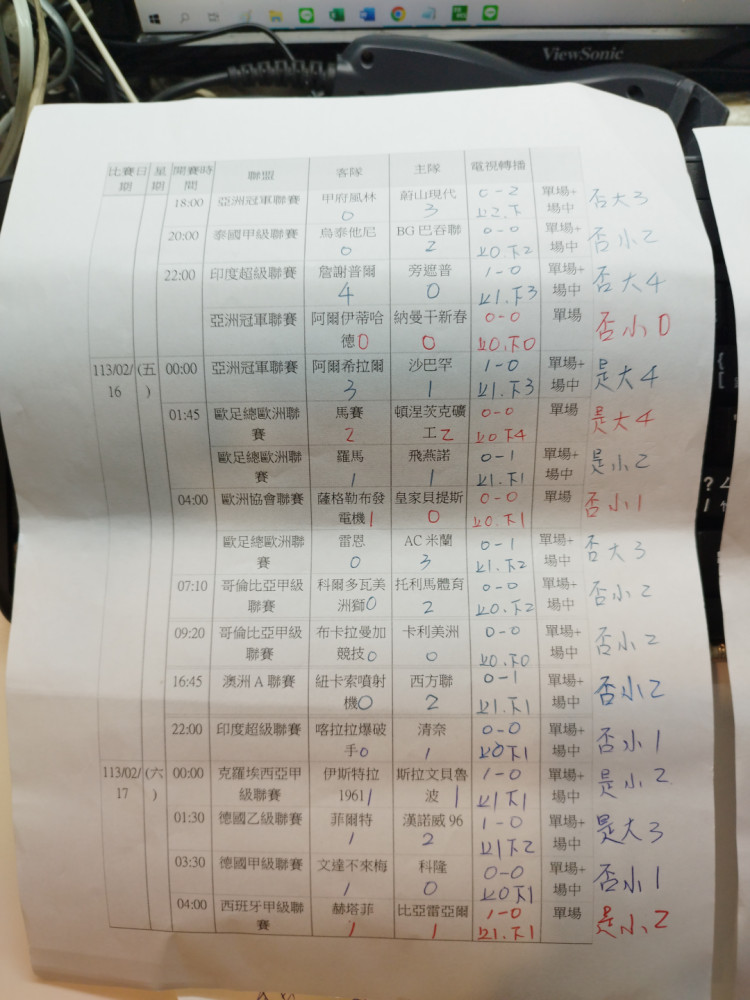 ViewSonic
比賽日期 星期 開賽時間 聯盟 客隊 主隊 電視轉播
18:00 亞洲冠軍聯賽 甲府風林 0 蔚山現代 3 0-2 上2.下 單場+場中 否大3
20:00 泰國甲級聯賽 烏泰他尼 0 BG巴吞聯 2 0-0 上0.下2 單場+場中 否小2
22:00 印度超級聯賽 詹謝普爾 4 旁遮普 0 1-0 上1.下3 單場+場中 否大4
亞洲冠軍聯賽 阿爾伊蒂哈德 0 納曼干新春 0 0-0 上0.下0 單場 否小0
113/02/16 (五) 00:00 亞洲冠軍聯賽 阿爾希拉爾 3 沙巴罕 1 1-0 上1.下3 單場+場中 是大4
01:45 歐足總歐洲聯賽 馬賽 2 頓涅茨克礦工 2 0-0 上0下4 單場 是大4
歐足總歐洲聯賽 羅馬 1 飛燕諾 1 0-1 上1.下1 單場+場中 是小2
04:00 歐洲協會聯賽 薩格勒布發電機 1 皇家貝提斯 0 0-0 上0.下1 單場 否小1
歐足總歐洲聯賽 雷恩 0 AC米蘭 3 0-1 上1.下2 單場+場中 否大3
07:10 哥倫比亞甲級聯賽 科爾多瓦美洲獅 0 托利馬體育 2 0-0 上0.下2 單場+場中 否小2
09:20 哥倫比亞甲級聯賽 布卡拉曼加競技 0 卡利美洲 0 0-0 上0.下0 單場+場中 否小2
16:45 澳洲A聯賽 紐卡索噴射機 0 西方聯 2 0-1 上1.下1 單場+場中 否小2
22:00 印度超級聯賽 喀拉拉爆破手 0 清奈 1 0-0 上0下1 單場+場中 否小1
113/02/17 (六) 00:00 克羅埃西亞甲級聯賽 伊斯特拉1961 1 斯拉文貝魯波 1 1-0 上1下1 單場+場中 是小2
01:30 德國乙級聯賽 菲爾特 1 漢諾威96 2 1-0 上1下2 單場+場中 是大3
03:30 德國甲級聯賽 文達不來梅 1 科隆 0 0-0 上0下1 單場+場中 否小1
04:00 西班牙甲級聯賽 赫塔菲 1 比亞雷亞爾 1 1-0 上1.下1 單場 是小2